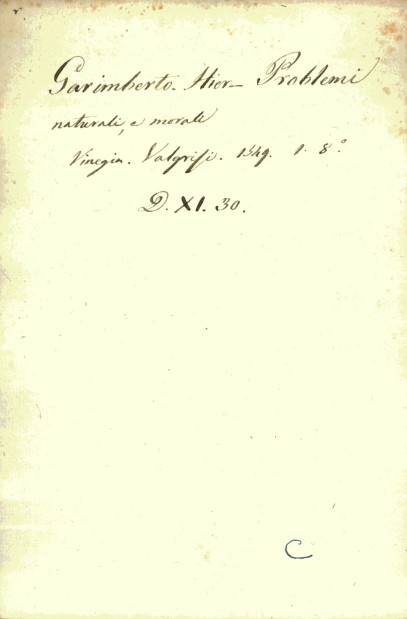 Garimberto. Hier– Problemi
naturali, e morali
Vinegia. Valgrisi. 1549. 1. 8.°
D. XI. 30.
C